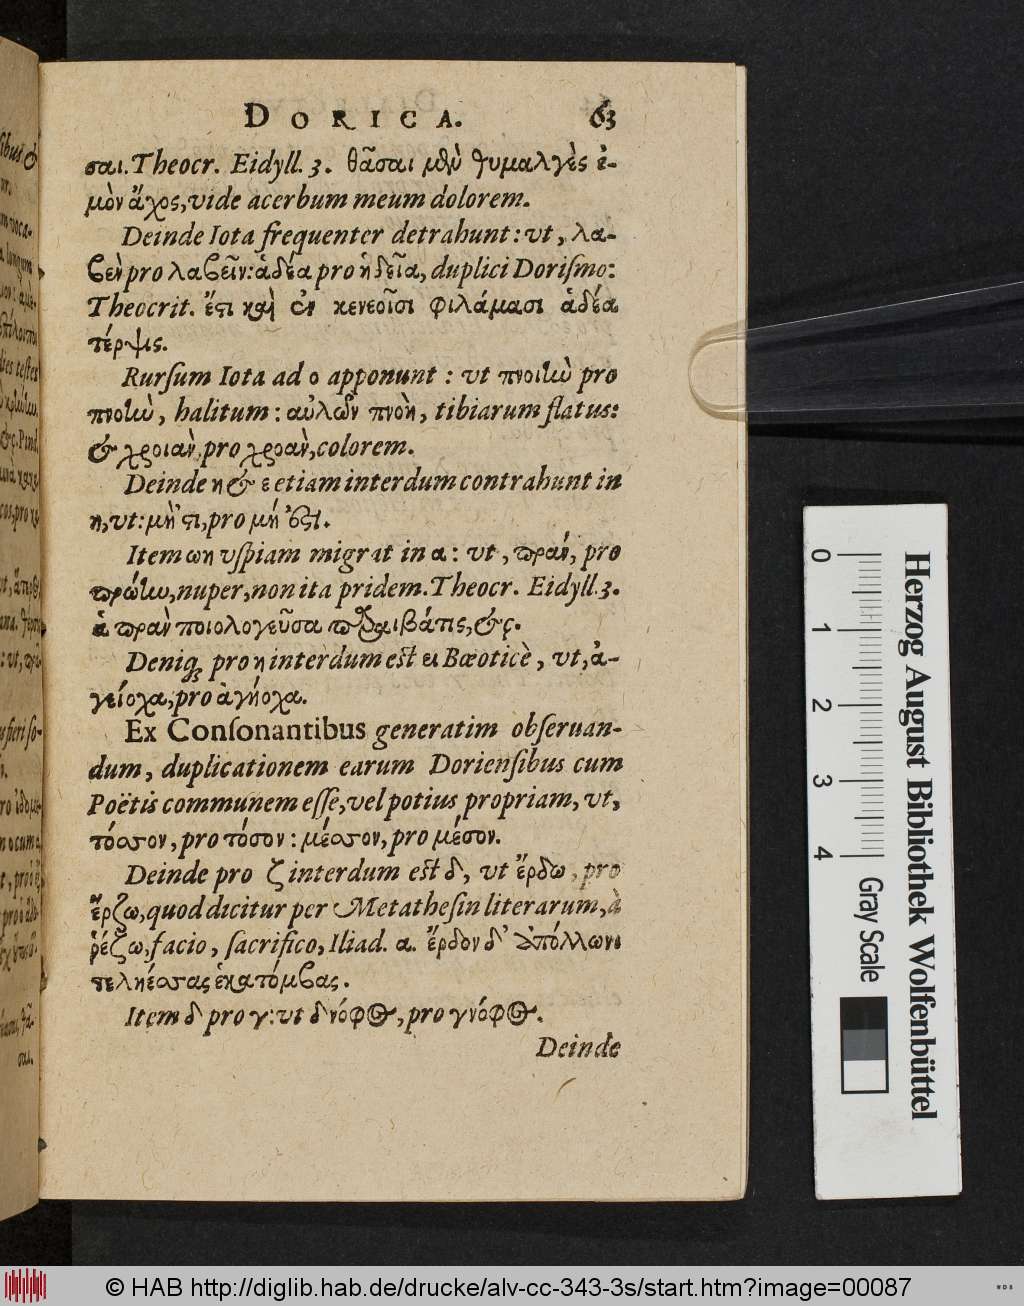 DORICA. 63
σαι. Theocr. Eidyll. 3. θᾶσαι μὰν θυμαλγὲς ἐ-
μὸν ἄχος, vide acerbum meum dolorem.
Deinde Iota frequenter detrahunt: vt, λα-
βεν pro λαβεῖν: ἁδέα pro ἡδεῖα, duplici Doriſmo:
Theocrit. ἔςι καὶ ἐν κενεοῖσι φιλάμασι ἁδέα
τέρψις.
Rurſum Iota ad ο apponunt: vt πνοιὴν pro
πνοὴν, halitum: αὐλῶν πνοὴ, tibiarum flatus:
& χροιὰν, pro χροὰν, colorem.
Deinde η & ε etiam interdum contrahunt in
η, vt: μή'ςι, pro μή ἐςι.
Item ω η vſpiam migrat in α: vt, πρὰν, pro
πρώην, nuper, non ita pridem. Theocr. Eidyll. 3.
ἁ πρὰν ποιολογεῦσα παραιβάτις, &c.
Deniq; pro η interdum est ει Bœoticè, vt, ἀ-
γείοχα, pro ἀγήοχα.
Ex Conſonantibus generatim obſeruan-
dum, duplicationem earum Dorienſibus cum
Poëtis communem eſſe, vel potius propriam, vt,
τόσσον, pro τόσον: μέσσον, pro μέσον.
Deinde pro ζ interdum est δ, vt ἔρδω, pro
ἔρζω, quod dicitur per Metatheſin literarum, à
ῥέζω, facio, ſacrifico, Iliad. α. ἔρδον δ' Ἀπόλλωνι
τεληέσσας ἑκατόμβας.
Item δ pro γ: vt δνόφος, pro γνόφος.
Deinde
Herzog August Bibliothek Wolfenbüttel
0 1 2 3 4
Gray Scale
© HAB http://diglib.hab.de/drucke/alv-cc-343-3s/start.htm?image=00087